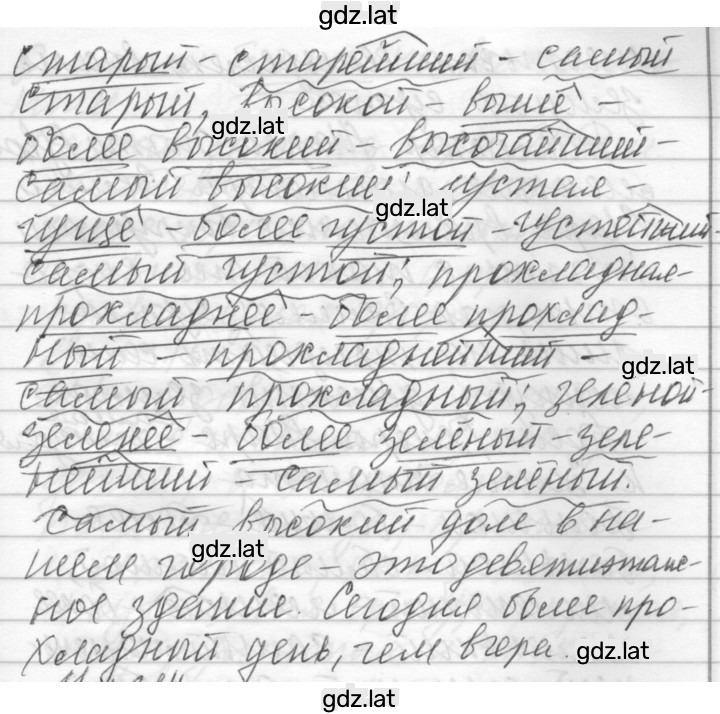 gdz.lat
старый - старейший - самый
старый, высокой - выше -
gdz.lat
более высокий - высочайший -
самый высокий; густая -
gdz.lat
гуще - более густой - густейший -
самый густой; прохладная -
прохладнее - более прохлад-
ный - прохладнейший -
gdz.lat
самый прохладный; зеленой -
зеленее - более зеленый - зеле-
нейший - самый зеленый.
Самый высокий дом в на-
gdz.lat
шем городе - это девятиэтаж-
ное здание. Сегодня более про-
хладный день, чем вчера.
gdz.lat
gdz.lat